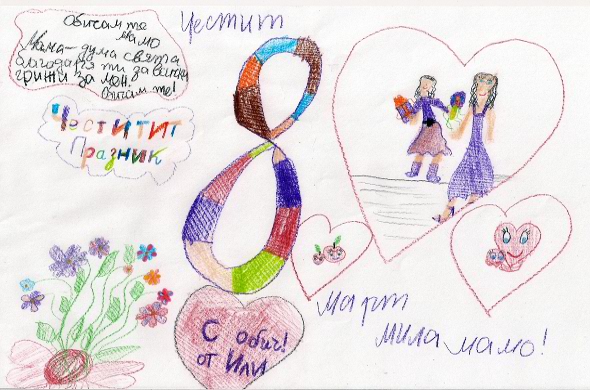 Обичам те
мамо
Мама – дума свята
благодаря ти за всички
грижи за мен.
Обичам те!
Честитит
Празник
Честит
8
Март
мила мамо!
С обич!
от Или